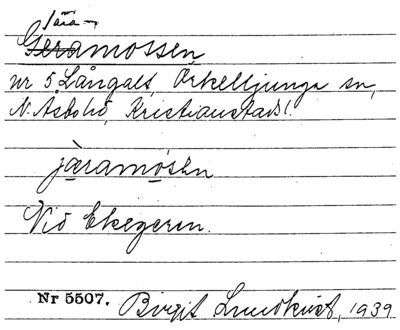 Tära-
Geramossen
nr 5 Långalt, Örkelljunga sn,
N. Åsbo hd, Kristianstads l.
jæramosen
Vid Ekegeren.
Nr 5507. Birgit Lundkvist, 1939